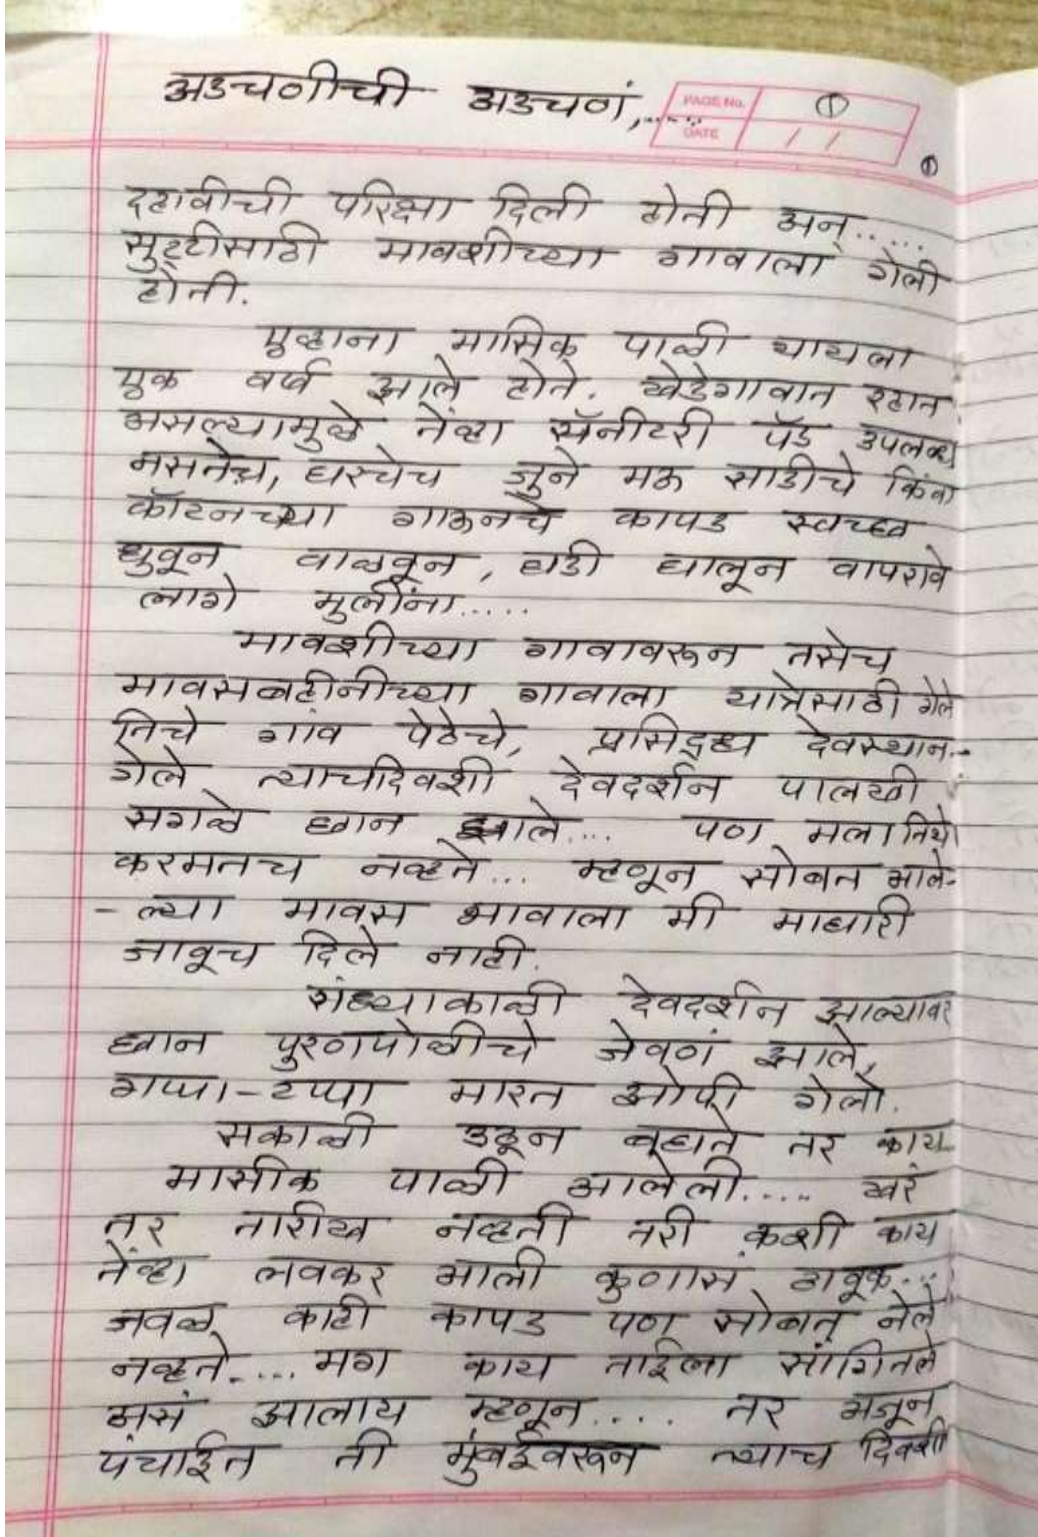 अडचणीची अडचणं,.....
PAGE No. ①
DATE / /
①
दहावीची परिक्षा दिली होती अन्.....
सुट्टीसाठी मावशीच्या गावाला गेली
होती.
एव्हाना मासिक पाळी यायला
एक वर्ष झाले होते. खेडेगावात रहात
असल्यामुळे तेंव्हा सॅनीटरी पॅड उपलब्ध
नसतेच, घरचेच जुने मऊ साडीचे किंवा
कॉटनच्या गाऊनचे कापड स्वच्छ
धुवून वाळवून, घडी घालून वापरावे
लागे मुलींना.....
मावशीच्या गावावरून तसेच
मावसबहीनीच्या गावाला यात्रेसाठी गेले
तिचे गांव पेठेचे, प्रसिद्ध देवस्थान..
गेले त्याचदिवशी देवदर्शन पालखी
सगळे छान झाले.... पण मला तिथे
करमतच नव्हते... म्हणून सोबत आले-
- ल्या मावस भावाला मी माघारी
जावूच दिले नाही.
संध्याकाळी देवदर्शन झाल्यावर
छान पुरणपोळीचे जेवणं झाले,
गप्पा-टप्पा मारत झोपी गेलो.
सकाळी उठून बघते तर काय
मासीक पाळी आलेली..... खरं
तर तारीख नव्हती तरी कशी काय
तेंव्हा लवकर आली कुणास ठावूक...
जवळ काही कापड पण सोबत नेले
नव्हते..... मग काय ताईला सांगितले
असं झालाय म्हणून.... तर अजून
पंचाईत ती मुंबईवरून त्याच दिवशी